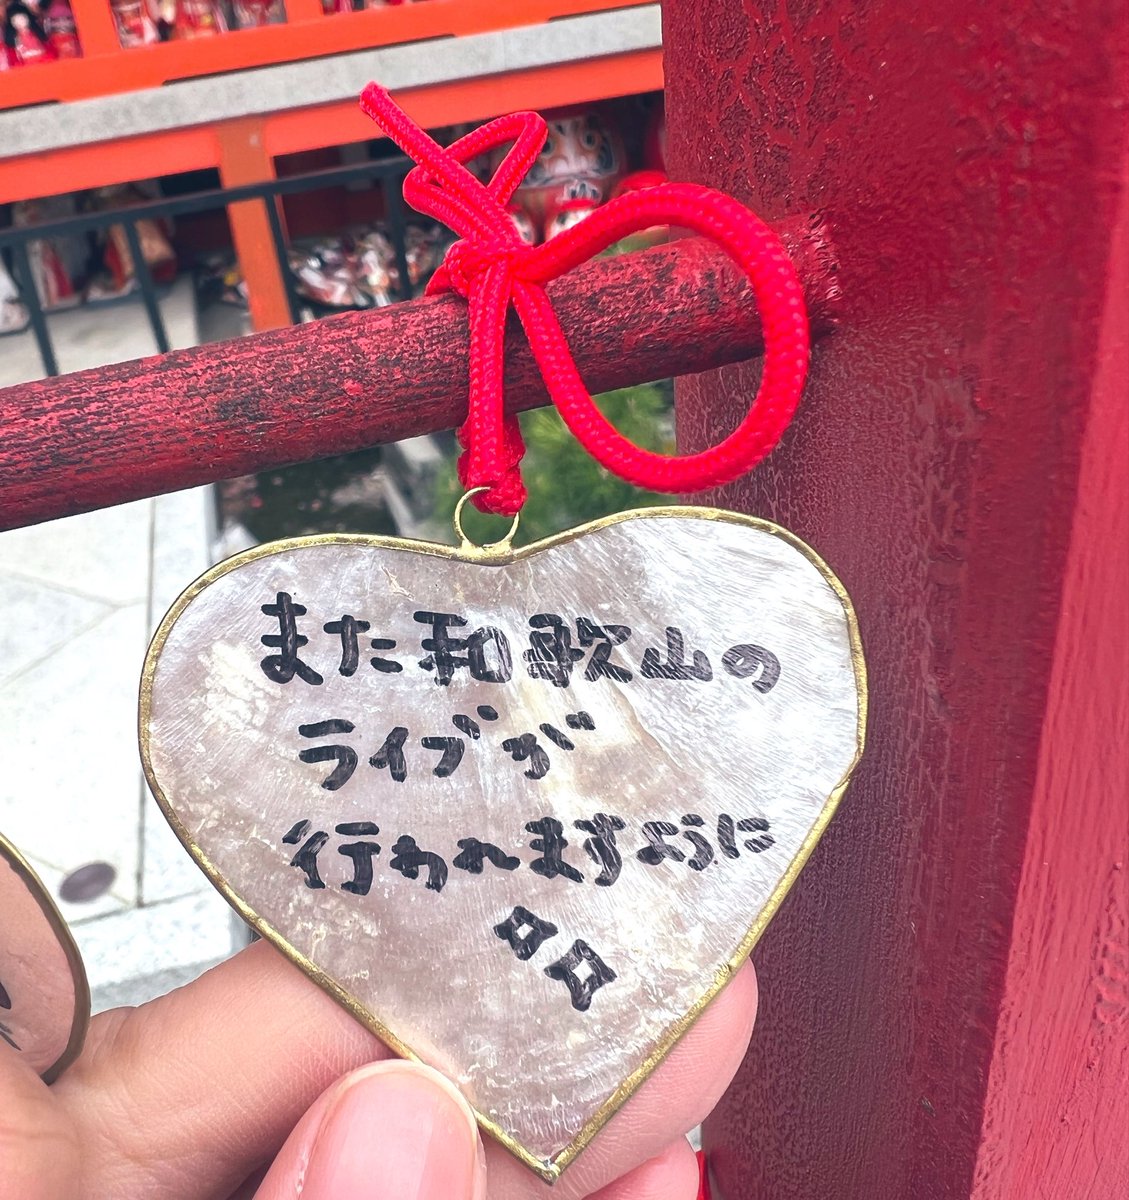 また和歌山の
ライブが
行われますように